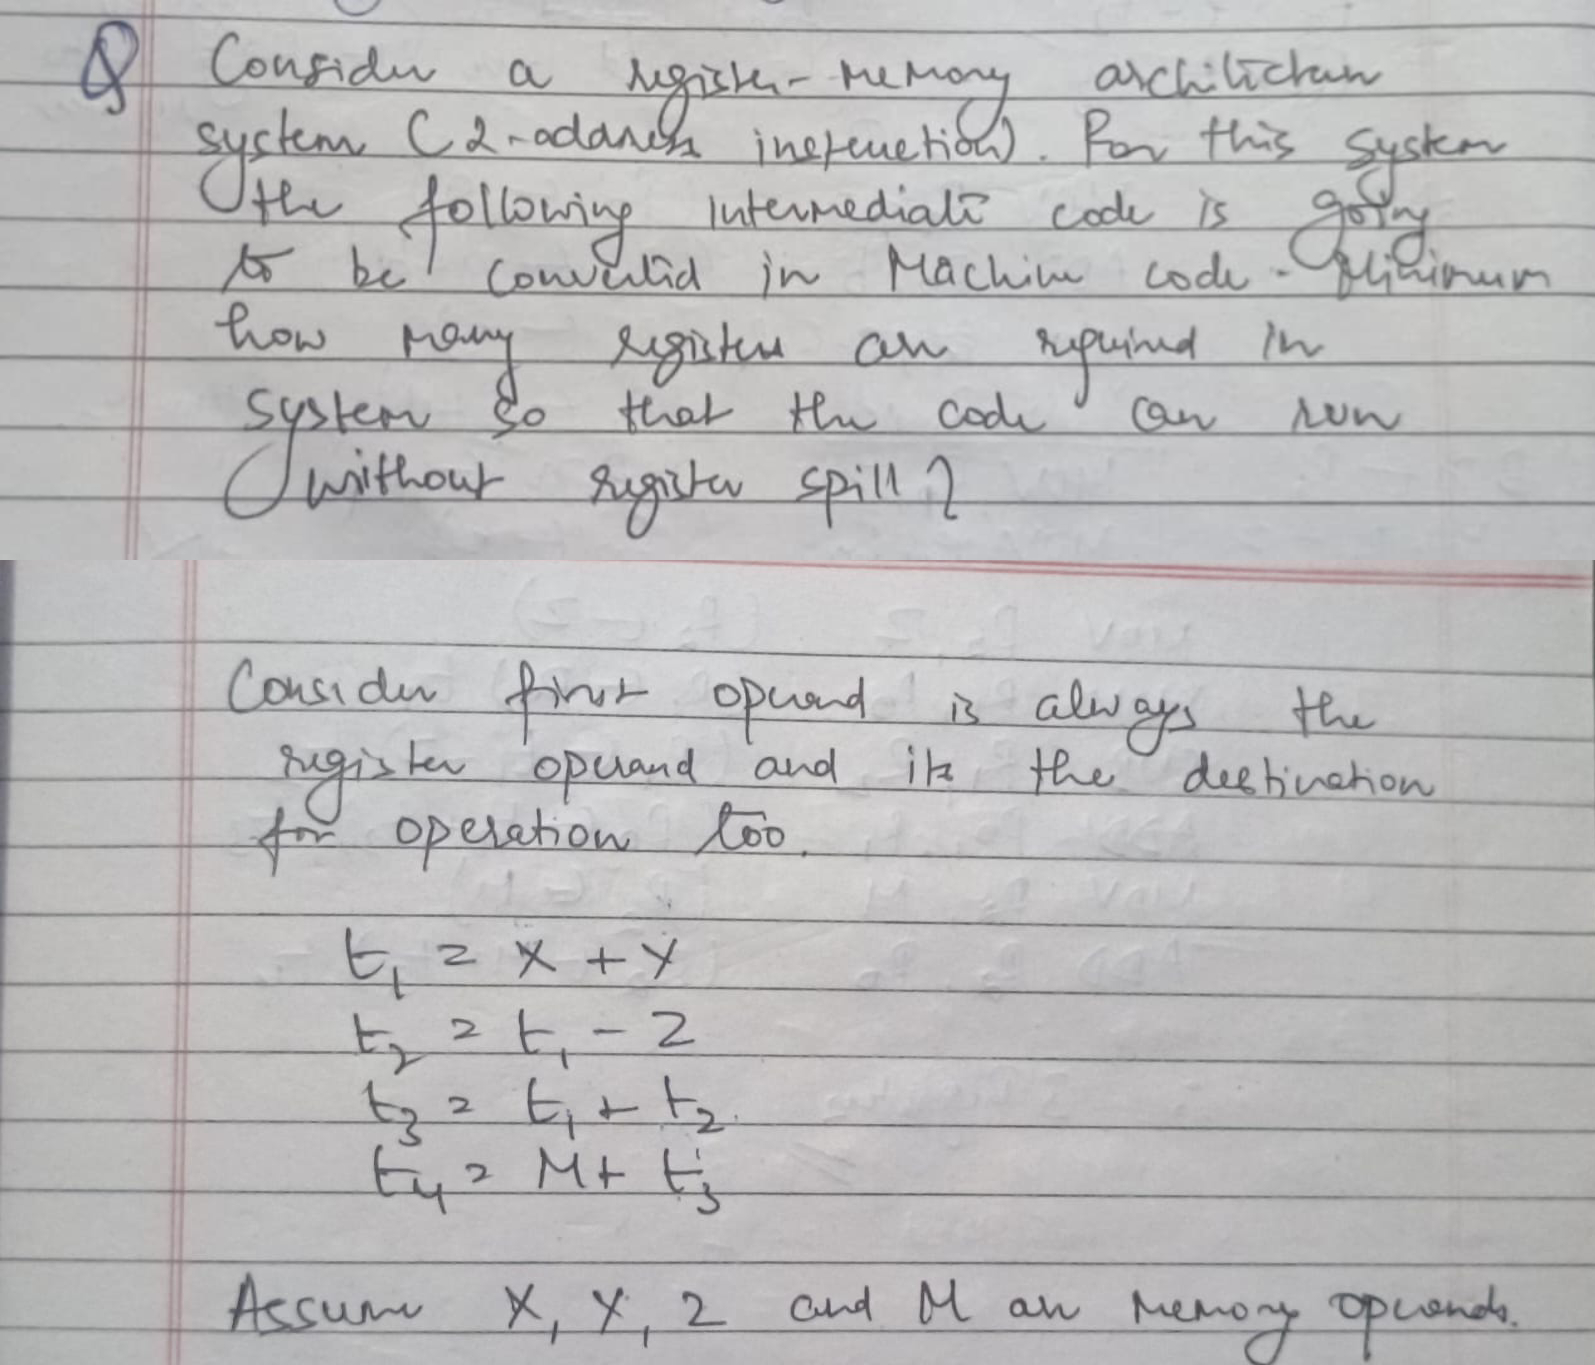 Q Consider a register-memory architecture
system (2-address instruction). For this system
the following intermediate code is going
to be converted in Machine code. Minimum
how many registers are required in
system so that the code can run
without register spill?
Consider first operand is always the
register operand and its the destination
for operation too.
t₁ = X + Y
t₂ = t₁ - Z
t₃ = t₁ + t₂
t₄ = M + t₃
Assume X, Y, Z and M are memory operands.